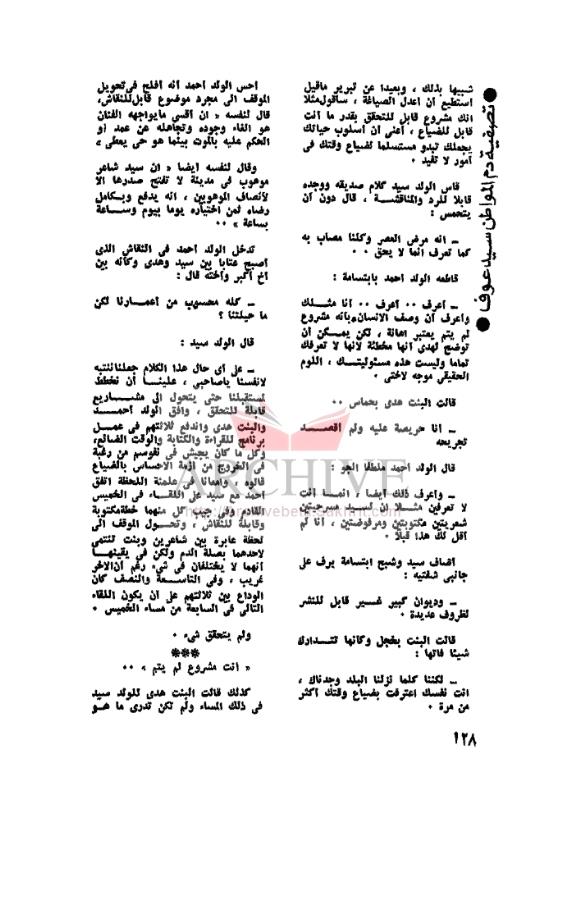 ● تصفية دم المواطن سيد عوف ●
شبيها بذلك ، وبعيدا عن تبرير ماقيل
استطيع ان اعدل الصياغة ، ساقول مثلا
انك مشروع قابل للتحقق بقدر ما أنت
قابل للضياع ، أعنى ان اسلوب حياتك
يجعلك تبدو مستسلما لضياع وقتك فى
أمور لا تفيد .
قاس الولد سيد كلام صديقه ووجده
قابلا للرد والمناقشة ، قال دون أن
يتحمس :
ــ انه مرض العصر وكلنا مصاب به
كما تعرف أنما لا يحق . .
قاطعه الولد احمد بابتسامة :
ــ أعرف .. أعرف .. أنا مثلك
وأعرف أن وصف الانسان بأنه مشروع
لم يتم يعتبر اهانة ، لكن يمكن أن
توضح لهدى أنها مخطئة لانها لا تعرفك
تماما وليست هذه مسئوليتك ، اللوم
الحقيقى موجه لاختى .
قالت البنت هدى بحماس ..
ــ أنا حريصة عليه ولم اقصد
تجريحه
قال الولد احمد ملطفا الجو :
ــ وأعرف ذلك أيضا ، انما أنت
لا تعرفين مثلا ان لسيد مسرحيتين
شعريتين مكتوبتين ومرفوضتين ، أنا لم
أقل لك هذا قبلا .
أضاف سيد وشبح ابتسامة يرف على
جانبى شفتيه :
ــ وديوان كبير غير قابل للنشر
لظروف عديدة .
قالت البنت بخجل وكأنها تتدارك
شيئا فاتها :
ــ لكننا كلما نزلنا البلد وجدناك ،
انت نفسك اعترفت بضياع وقتك أكثر
من مرة .
احس الولد احمد أنه أفلح فى تحويل
الموقف الى مجرد موضوع قابل للنقاش،
قال لنفسه « ان أقسى مايواجهه الفنان
هو الغاء وجوده وتجاهله عن عمد أو
الحكم عليه بالموت بينما هو حى يعطى »
وقال لنفسه ايضا « ان سيد شاعر
موهوب فى مدينة لا تفتح صدرها الا
لأنصاف الموهوبين ، انه يدفع وبكامل
رضاه ثمن اختياره يوما بيوم وساعة
بساعة » ..
تدخل الولد احمد فى النقاش الذى
أصبح عتابا بين سيد وهدى وكأنه بين
أخ أكبر وأخته قال :
ــ كله محسوب من أعمارنا لكن
ما حيلتنا ؟
قال الولد سيد :
ــ على أى حال هذا الكلام جعلنا ننتبه
لانفسنا ياصاحبى ، علينا أن نخطط
لمستقبلنا حتى يتحول الى مشاريع
قابلة للتحقق ، وافق الولد أحمد
والبنت هدى واندفع ثلاثتهم فى عمل
برنامج للقراءة والكتابة والوقت الضائع،
وكل ما كان يجيش فى نفوسم من رغبة
فى الخروج من أزمة الاحساس بالضياع
قالوه ، وامعانا فى علمنة اللحظة اتفق
احمد مع سيد على اللقاء فى الخميس
القادم وفى جيب كل منهما خطة مكتوبة
وقابلة للنقاش ، وتحول الموقف الى
لحظة عابرة بين شاعرين وبنت تنتمى
لاحدهما بصلة الدم ولكن فى يقينها
أنهما لا يختلفان فى شىء رغم أن الاخر
غريب ، وفى التاسعة والنصف كان
الوداع بين ثلاثتهم على أن يكون اللقاء
التالى فى السابعة من مساء الخميس .
ولم يتحقق شىء .
***
« انت مشروع لم يتم » ..
كذلك قالت البنت هدى للولد سيد
فى ذلك المساء ولم تكن تدرى ما هو
١٢٨
ARCHIVE